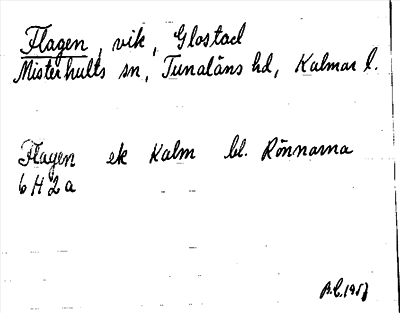 Flagen, vik, Glostad
Misterhults sn, Tunaläns hd, Kalmar l.
Flagen ek Kalm bl. Rönnarna
6 H 2 a